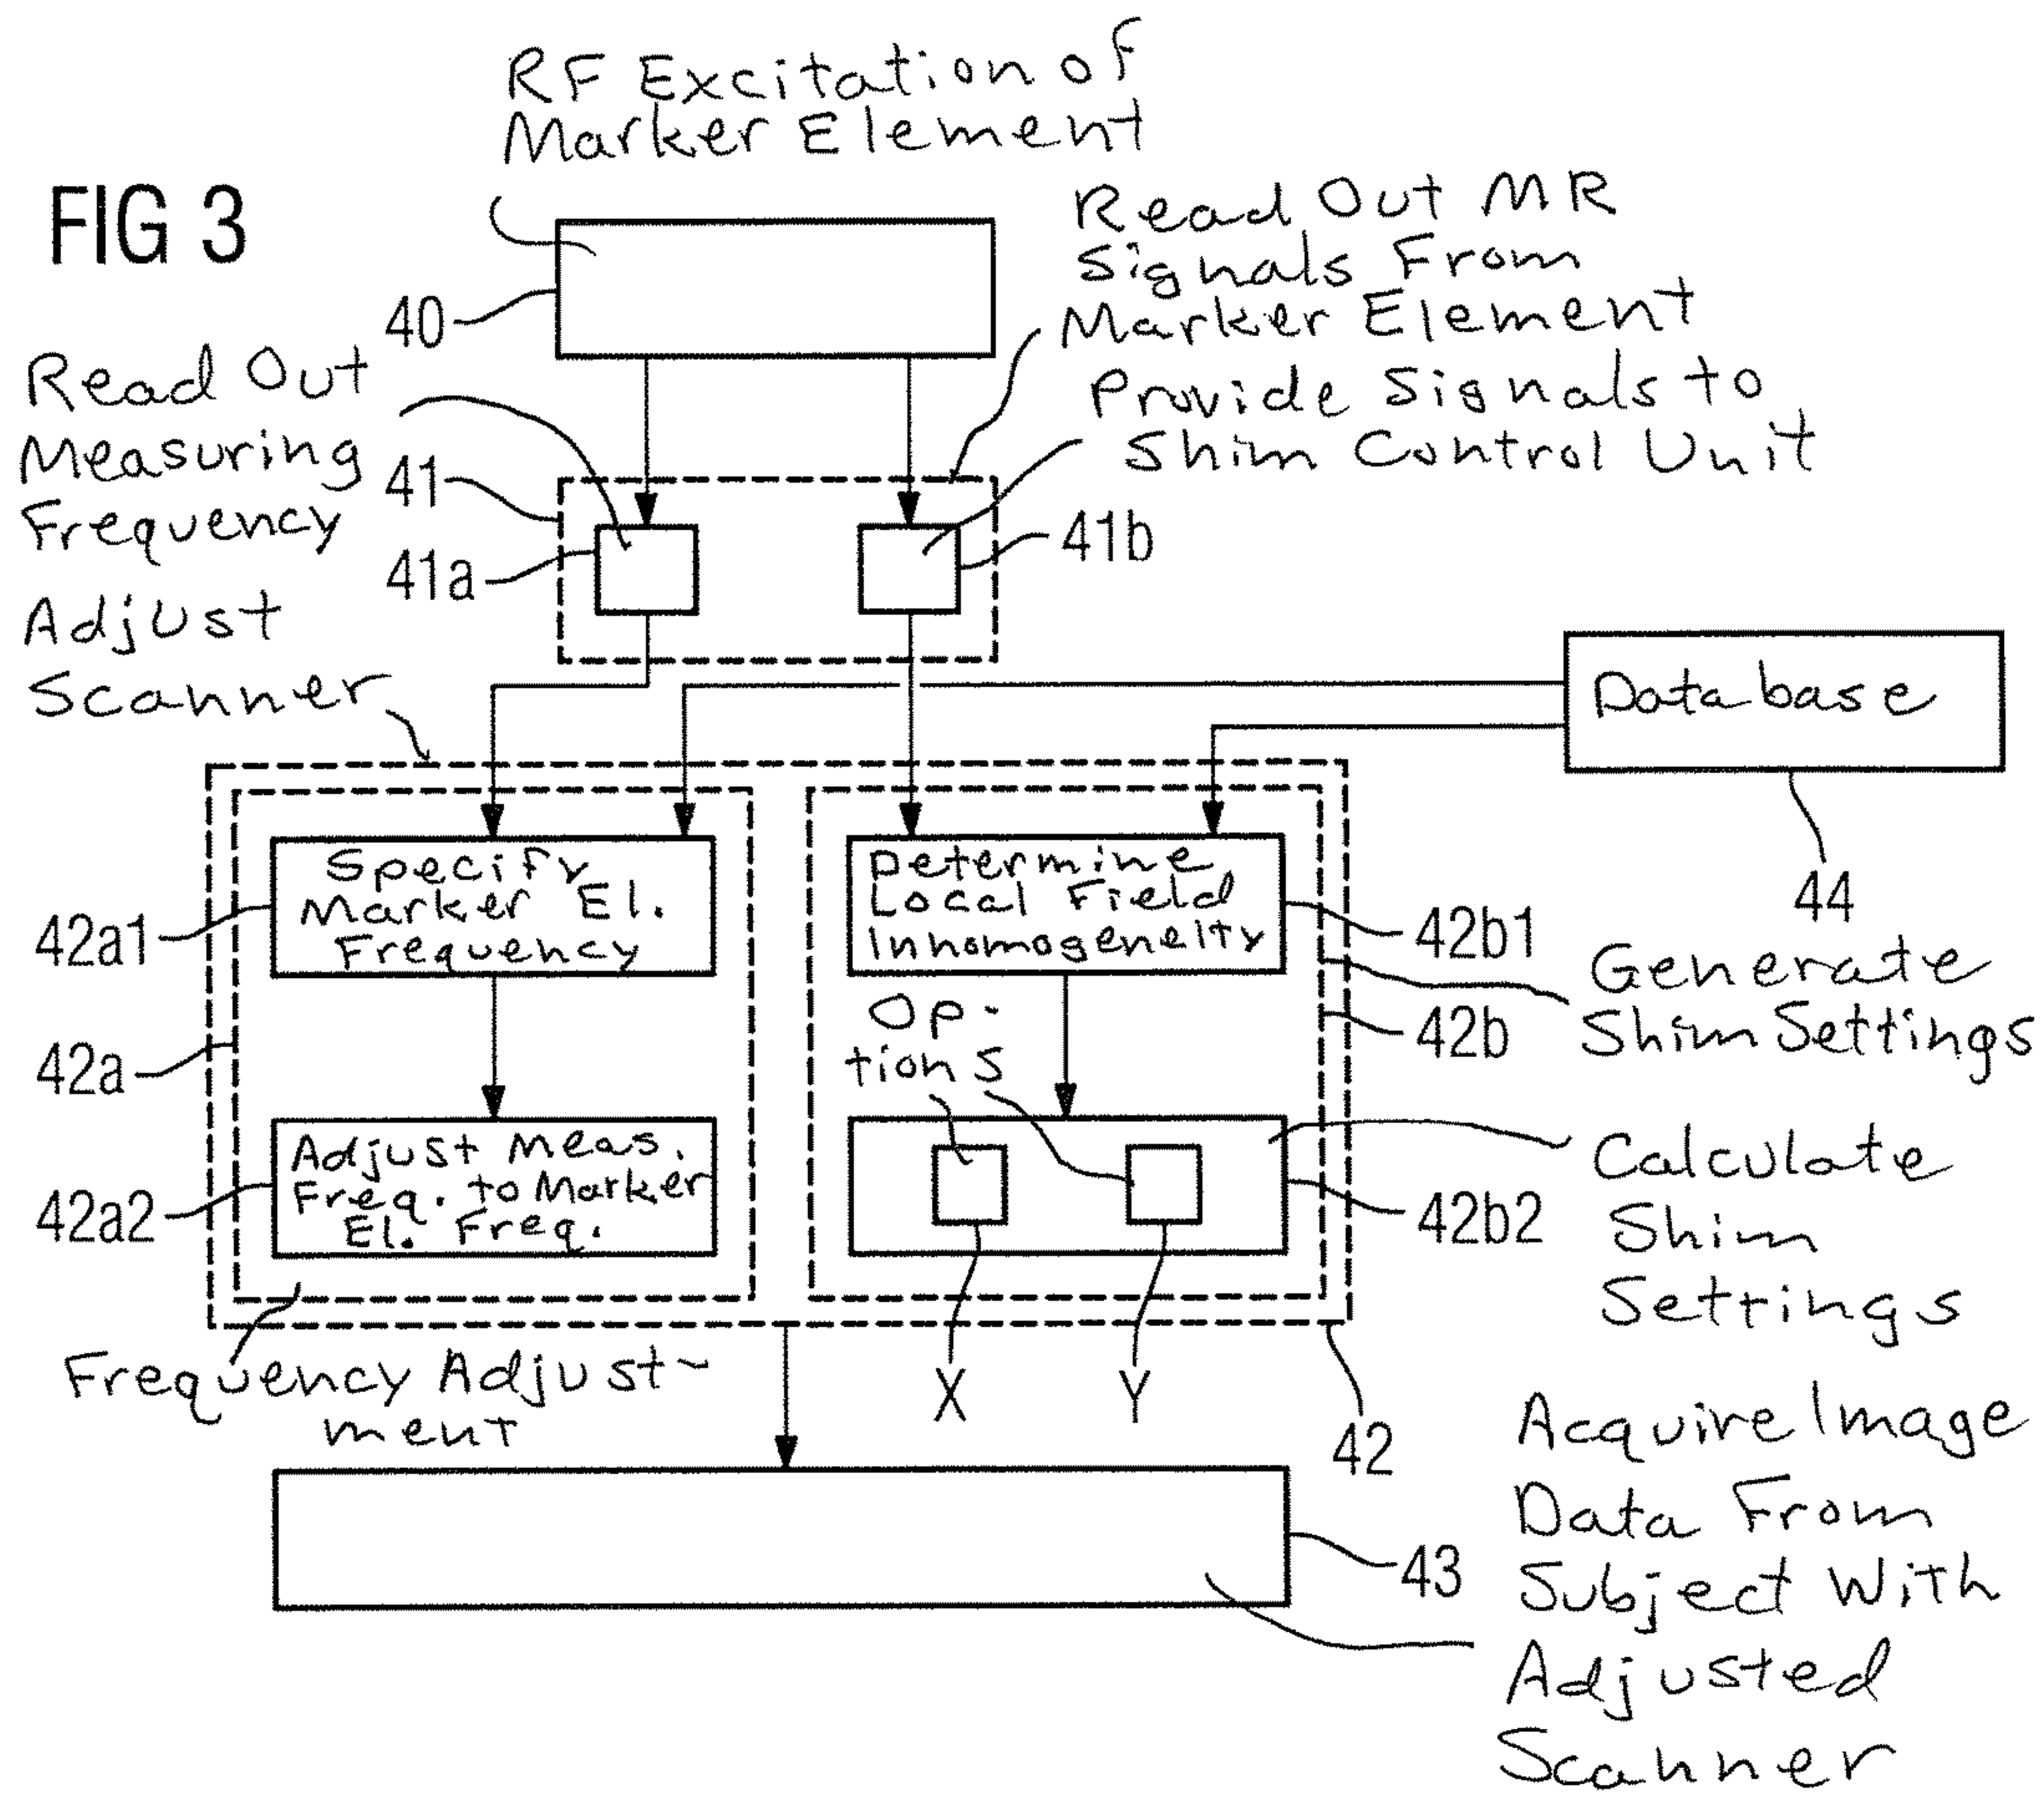 RF Excitation of
Marker Element
FIG 3
Read Out MR
Signals From
Marker Element
40
Provide Signals to
Shim Control Unit
Read Out
Measuring
Frequency
41
41a
41b
Adjust
Scanner
Database
44
Specify
Marker El.
Frequency
42a1
Determine
Local Field
Inhomogeneity
42b1
Generate
Shim Settings
42b
42a
Op-
tions
Adjust Meas.
Freq. to Marker
El. Freq.
42a2
42b2
Calculate
Shim
Settings
Frequency Adjust-
ment
X
Y
42
43
Acquire Image
Data From
Subject With
Adjusted
Scanner